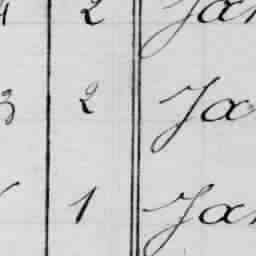 2 Jan
3 2 Jan
1 Jan